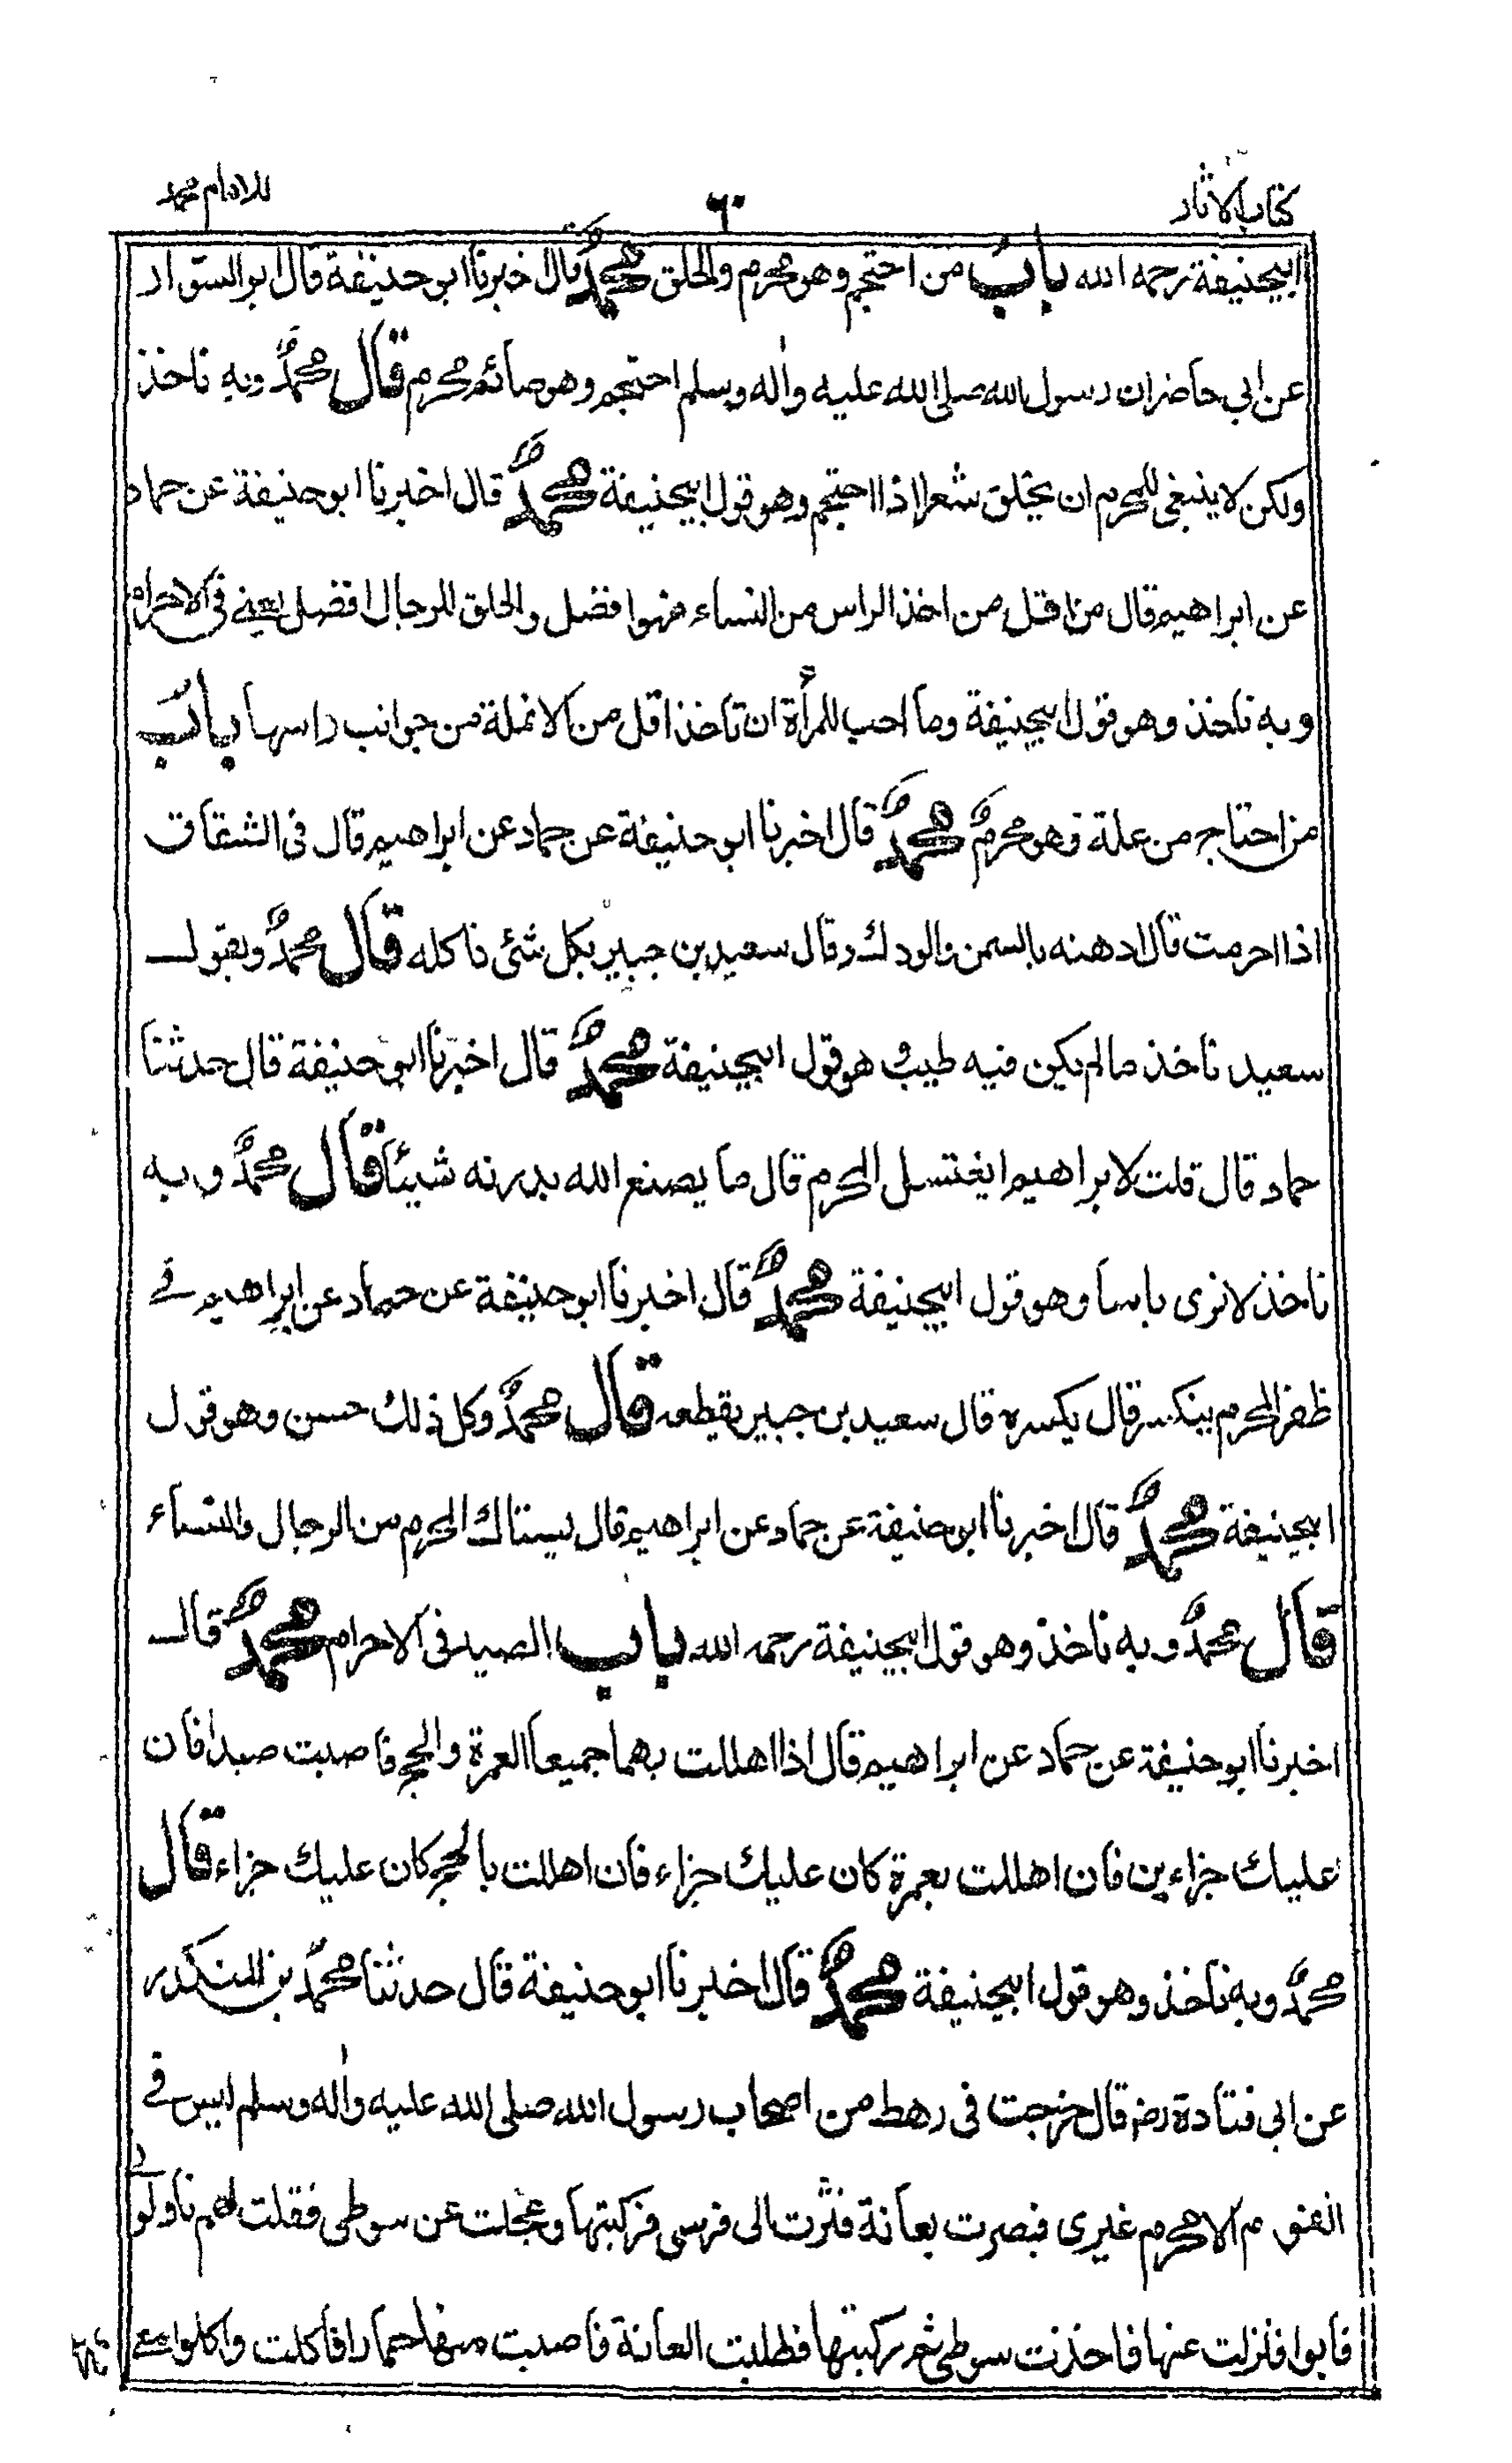 كتاب الاثار
٦٠
للامام محمد
ابيحنيفة رحمه الله باب من احتجم وهو محرم والحلق محمد قال اخبرنا ابو حنيفة قال ابو السوار
عن ابي حاضر ان رسول الله صلى الله عليه واله وسلم احتجم وهو صائم محرم قال محمد وبه ناخذ
ولكن لا ينبغي للمحرم ان يحلق شعرا اذا احتجم وهو قول ابيحنيفة محمد قال اخبرنا ابو حنيفة عن حماد
عن ابراهيم قال من اقل من اخذ الراس من النساء فهو افضل والحلق للرجال افضل يعني في الاحرام
وبه ناخذ وهو قول ابيحنيفة وما احب للمرأة ان تاخذ اقل من الانملة من جوانب راسها باب
من احتاج من علة وهو محرم محمد قال اخبرنا ابو حنيفة عن حماد عن ابراهيم قال في الشقاق
اذا احرمت قال ادهنه بالسمن والودك وقال سعيد بن جبير بكل شئ ناكله قال محمد وبقول
سعيد ناخذ ما لم يكن فيه طيب وهو قول ابيحنيفة محمد قال اخبرنا ابو حنيفة قال حدثنا
حماد قال قلت لابراهيم ايغتسل المحرم قال ما يصنع الله بدرنه شيئا قال محمد وبه
ناخذ لا نرى باسا وهو قول ابيحنيفة محمد قال اخبرنا ابو حنيفة عن حماد عن ابراهيم في
ظفر المحرم ينكسر قال يكسره قال سعيد بن جبير يقطعه قال محمد وكل ذلك حسن وهو قول
ابيحنيفة محمد قال اخبرنا ابو حنيفة عن حماد عن ابراهيم قال يستاك المحرم من الرجال والنساء
قال محمد وبه ناخذ وهو قول ابيحنيفة رحمه الله باب الصيد في الاحرام محمد قال
اخبرنا ابو حنيفة عن حماد عن ابراهيم قال اذا اهللت بهما جميعا العمرة والحج فاصبت صيدا فان
عليك جزاءين فان اهللت بعمرة كان عليك جزاء فان اهللت بالحج كان عليك جزاء قال
محمد وبه ناخذ وهو قول ابيحنيفة محمد قال اخبرنا ابو حنيفة قال حدثنا محمد بن المنكدر
عن ابي قتادة رضه قال خرجت في رهط من اصحاب رسول الله صلى الله عليه واله وسلم ليس في
القوم الا محرم غيري فبصرت بعانة فثرت الى فرسي فركبتها وعجلت عن سوطي فقلت لهم ناولوني
فابوا فنزلت عنها فاخذت سوطي ثم ركبتها فطلبت العانة فاصبت منها حمارا فاكلت واكلوا معي